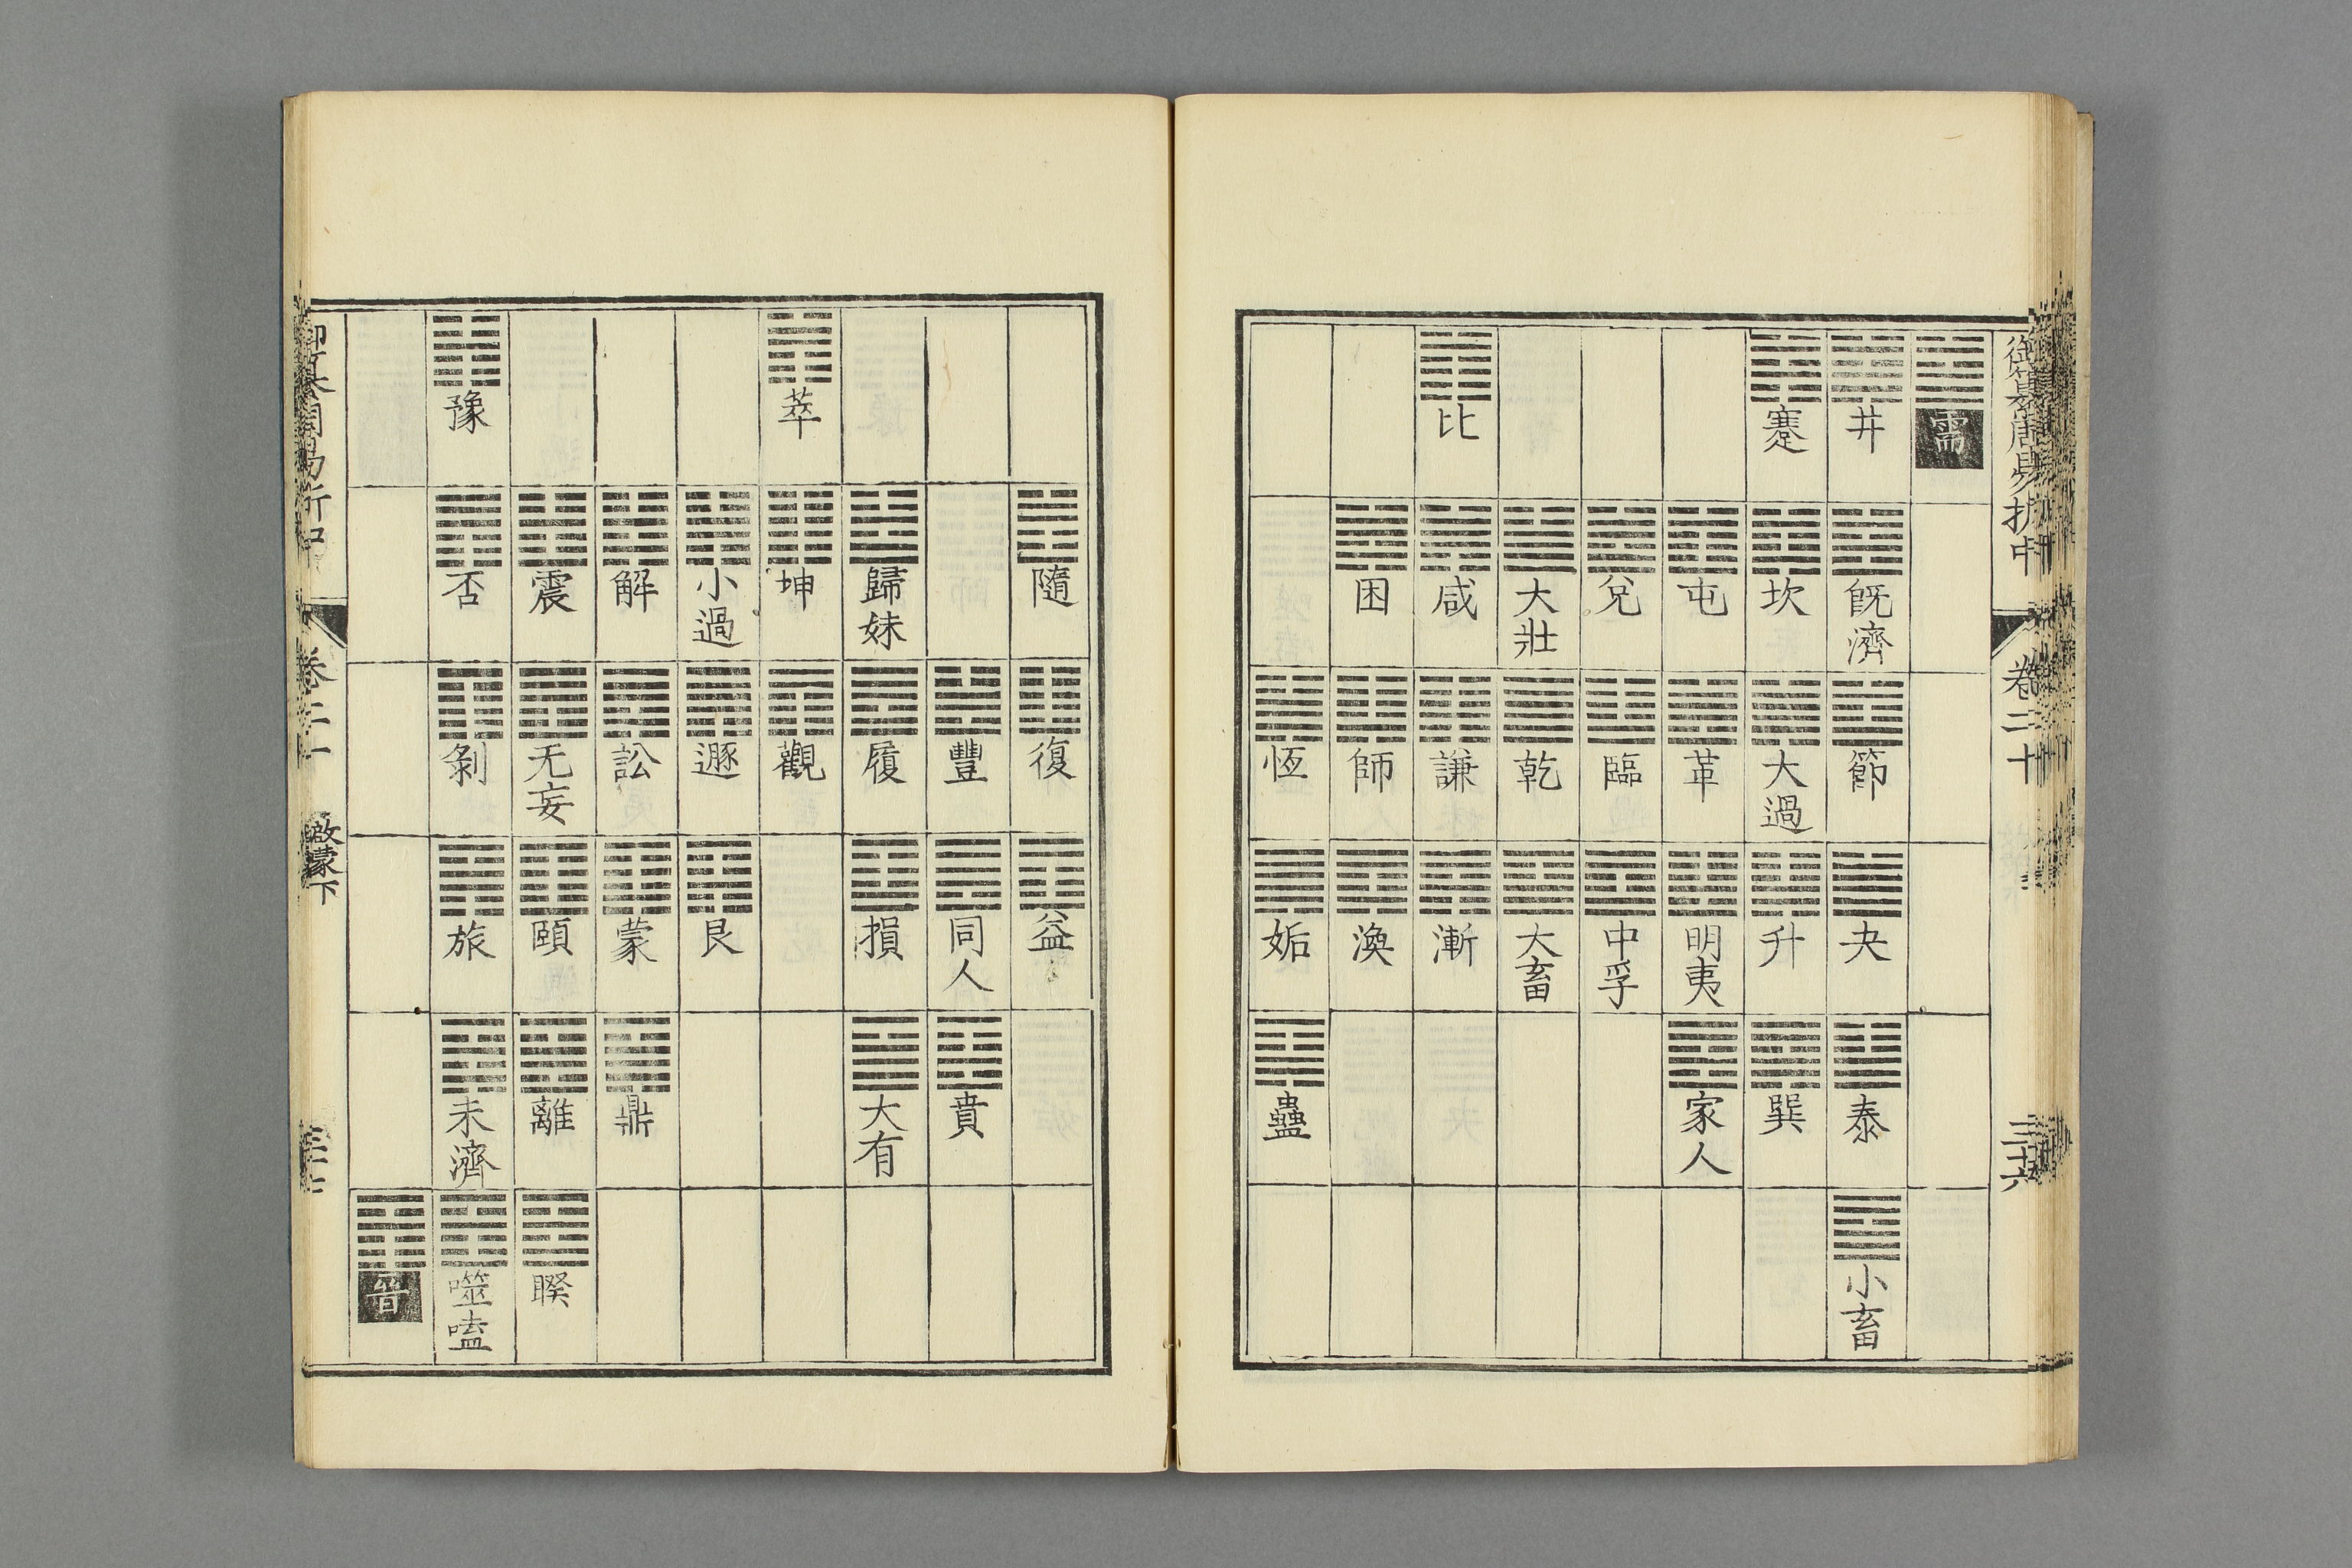 御纂周易折中 卷二十 三十六
需
井 既濟 節 夬 泰 小畜
蹇 坎 大過 升 巽
屯 革 明夷 家人
兌 臨 中孚
大壯 乾 大畜
比 咸 謙 漸
困 師 渙
恆 姤 蠱
隨 復 益
豐 同人 賁
歸妹 履 損 大有
萃 坤 觀
小過 遯 艮
解 訟 蒙 鼎
震 无妄 頤 離 睽
豫 否 剝 旅 未濟 噬嗑
晉
御纂周易折中 卷二十 啟蒙下